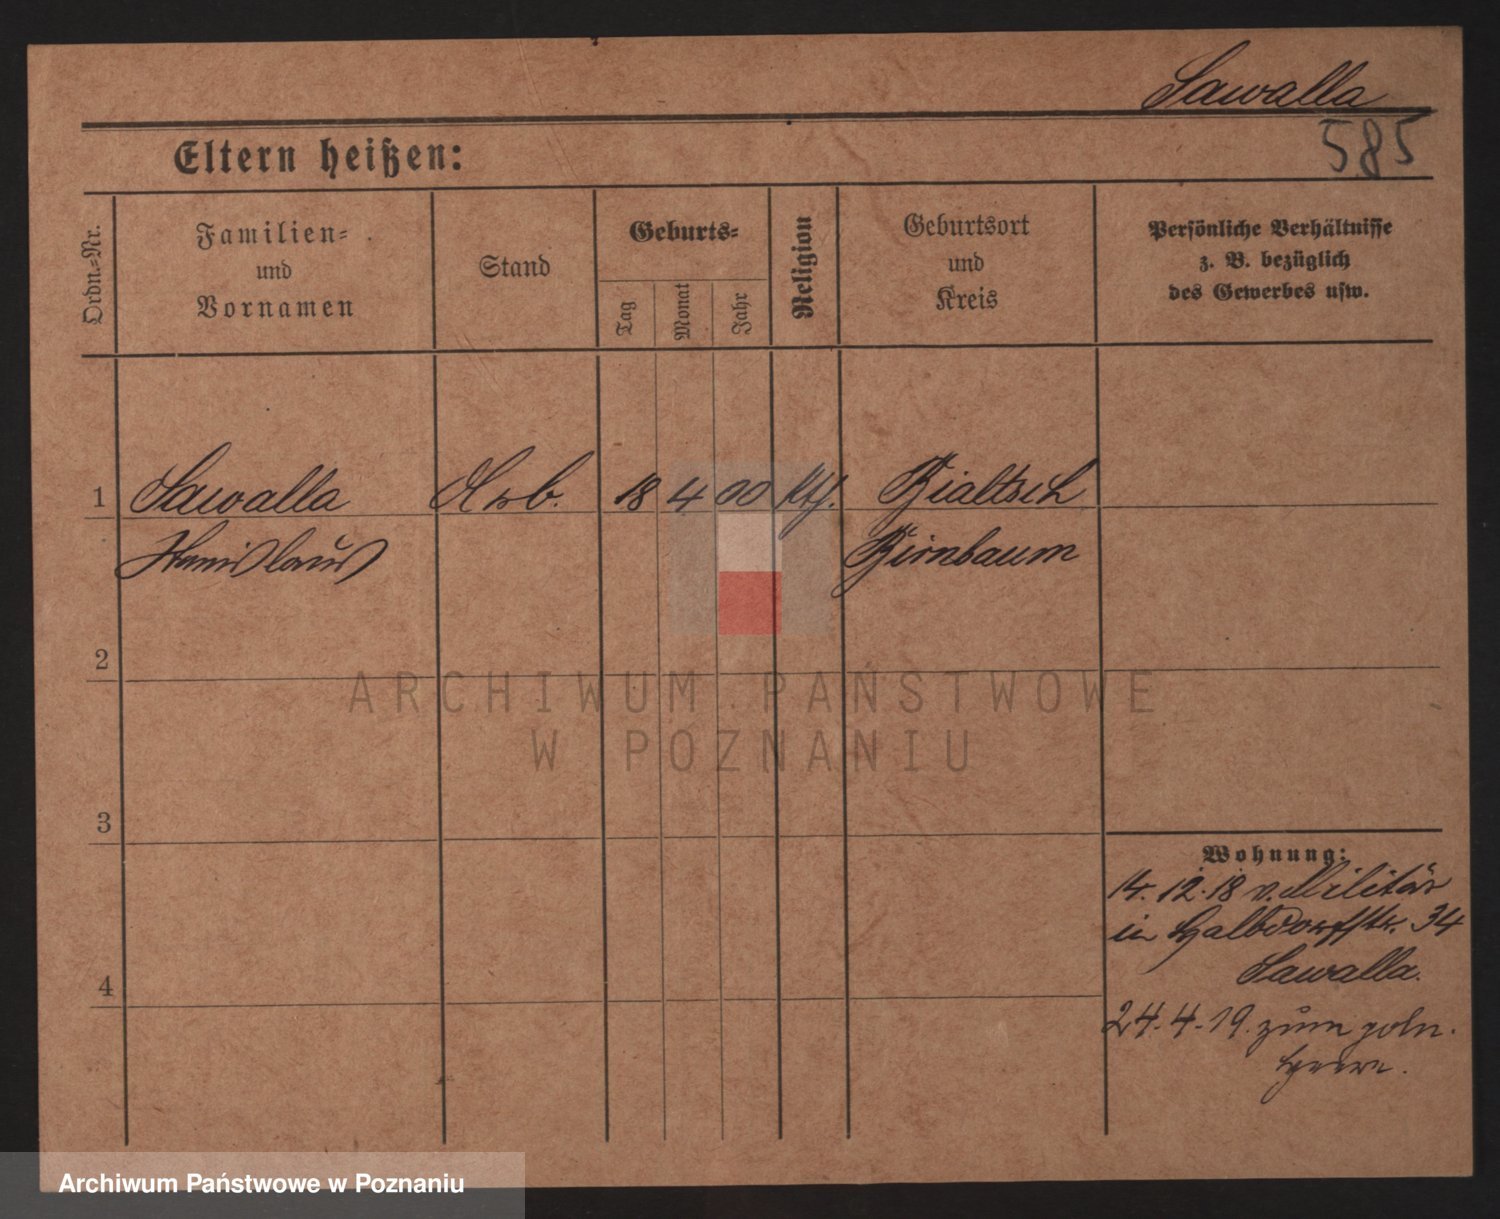 Sawalla
585
Eltern heißen:
Ordn.=Nr.
Familien=
und
Vornamen
Stand
Geburts=
Tag
Monat
Jahr
Religion
Geburtsort
und
Kreis
Persönliche Verhältnisse
z. B. bezüglich
des Gewerbes usw.
1 Sawalla Arb. 18 4 00 kth. Bialtsch
Stanislaus Birnbaum
2
3
4
Wohnung:
14.12.18 v. Militär
in Halbdorfstr. 34
Sawalla.
24.4.19. zum poln.
Heere.
ARCHIWUM PAŃSTWOWE
W POZNANIU
Archiwum Państwowe w Poznaniu